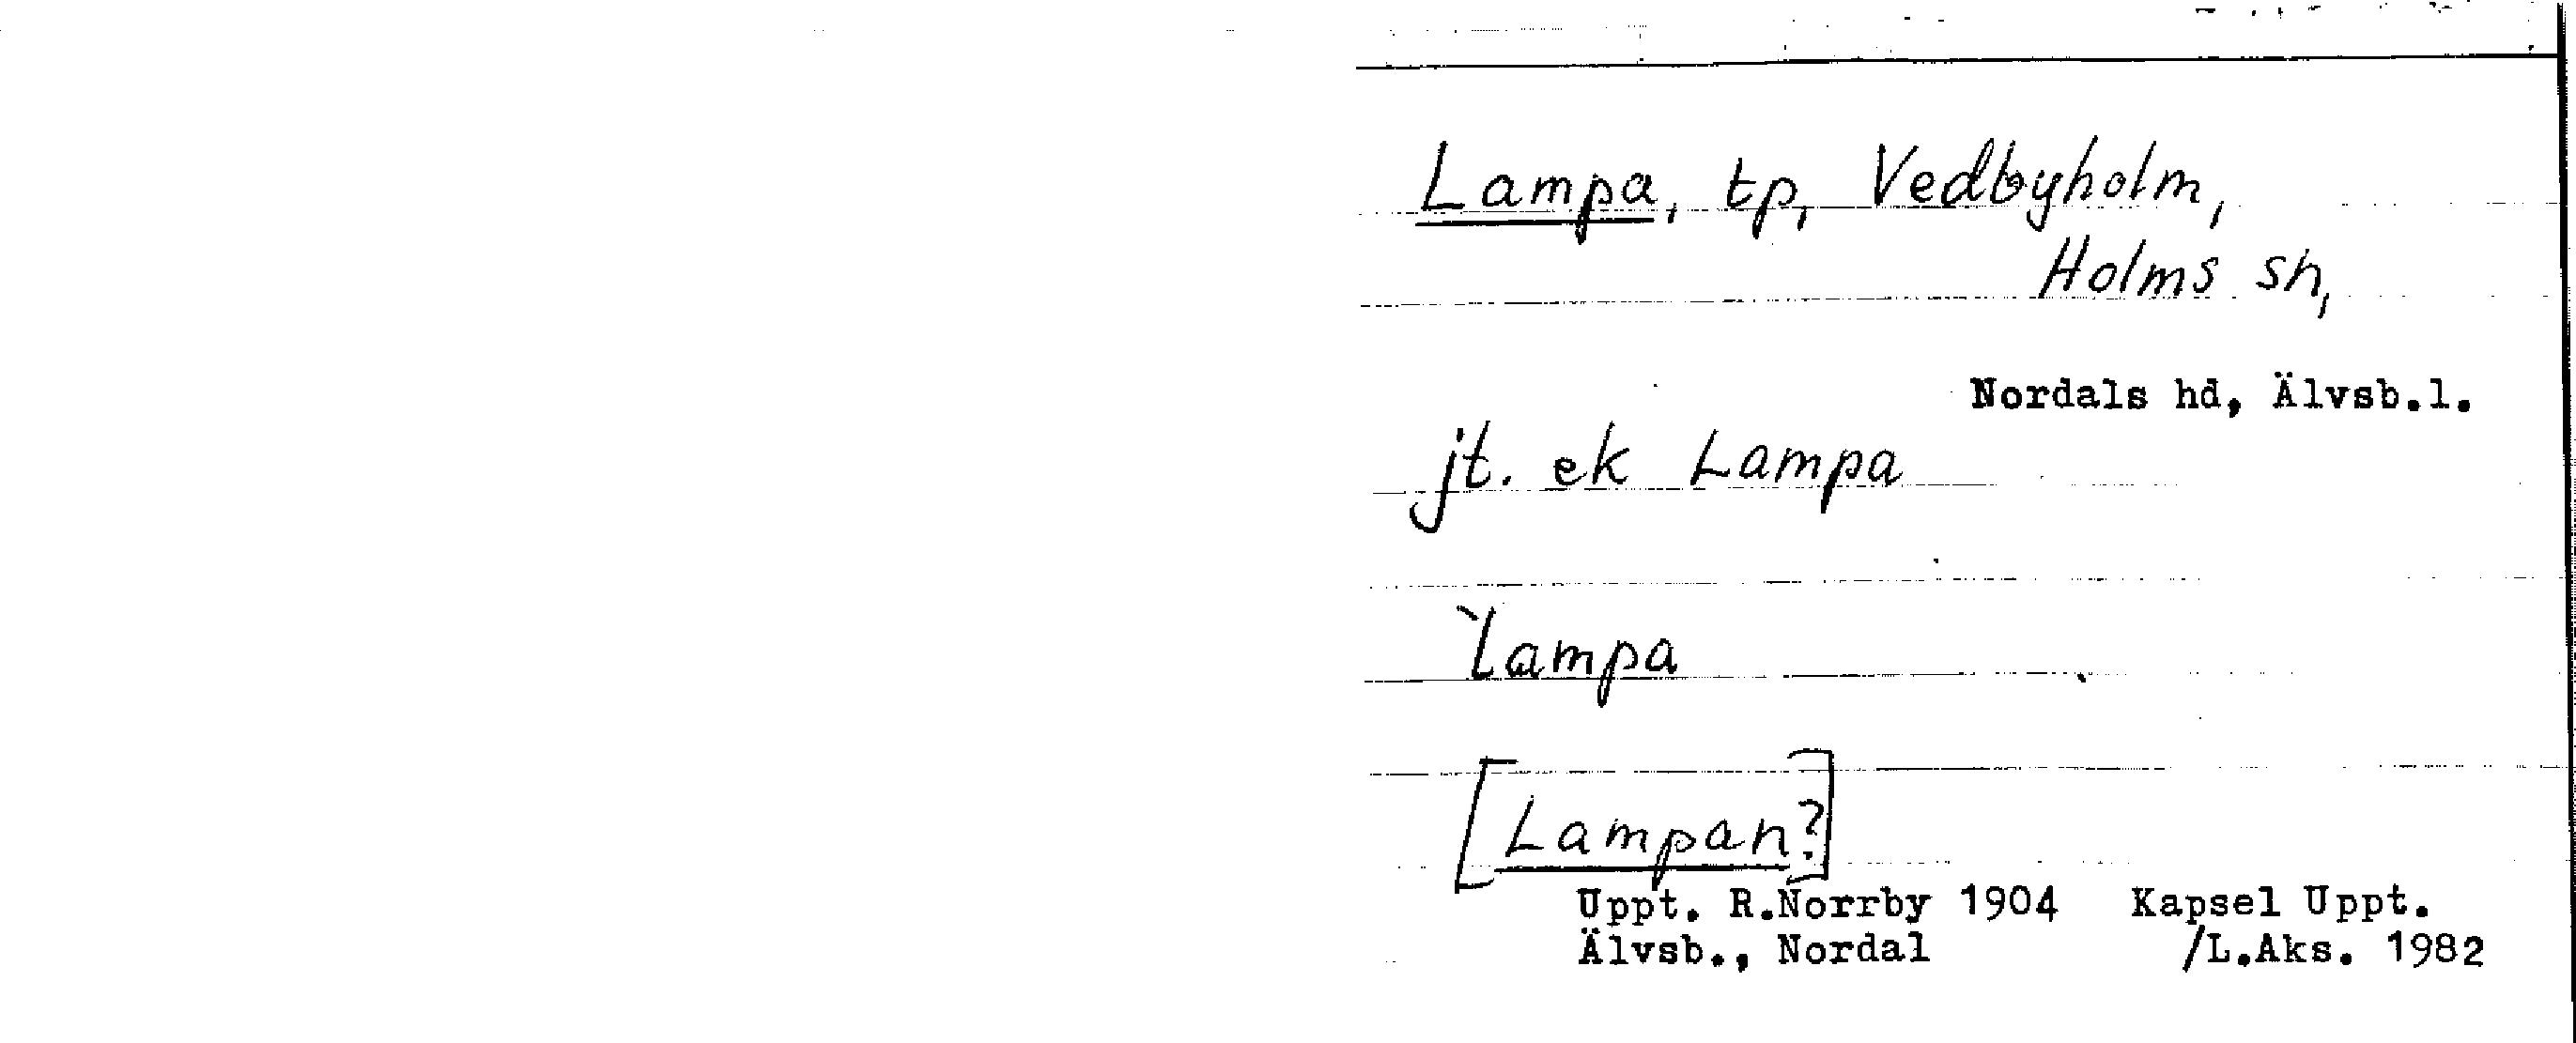 Lampa, tp, Vedbyholm,
Holms sn,
Nordals hd, Älvsb.l.
jt. ek Lampa
`lampa
[Lampan?]
Uppt. R.Norrby 1904 Kapsel Uppt.
Älvsb., Nordal /L.Aks. 1982